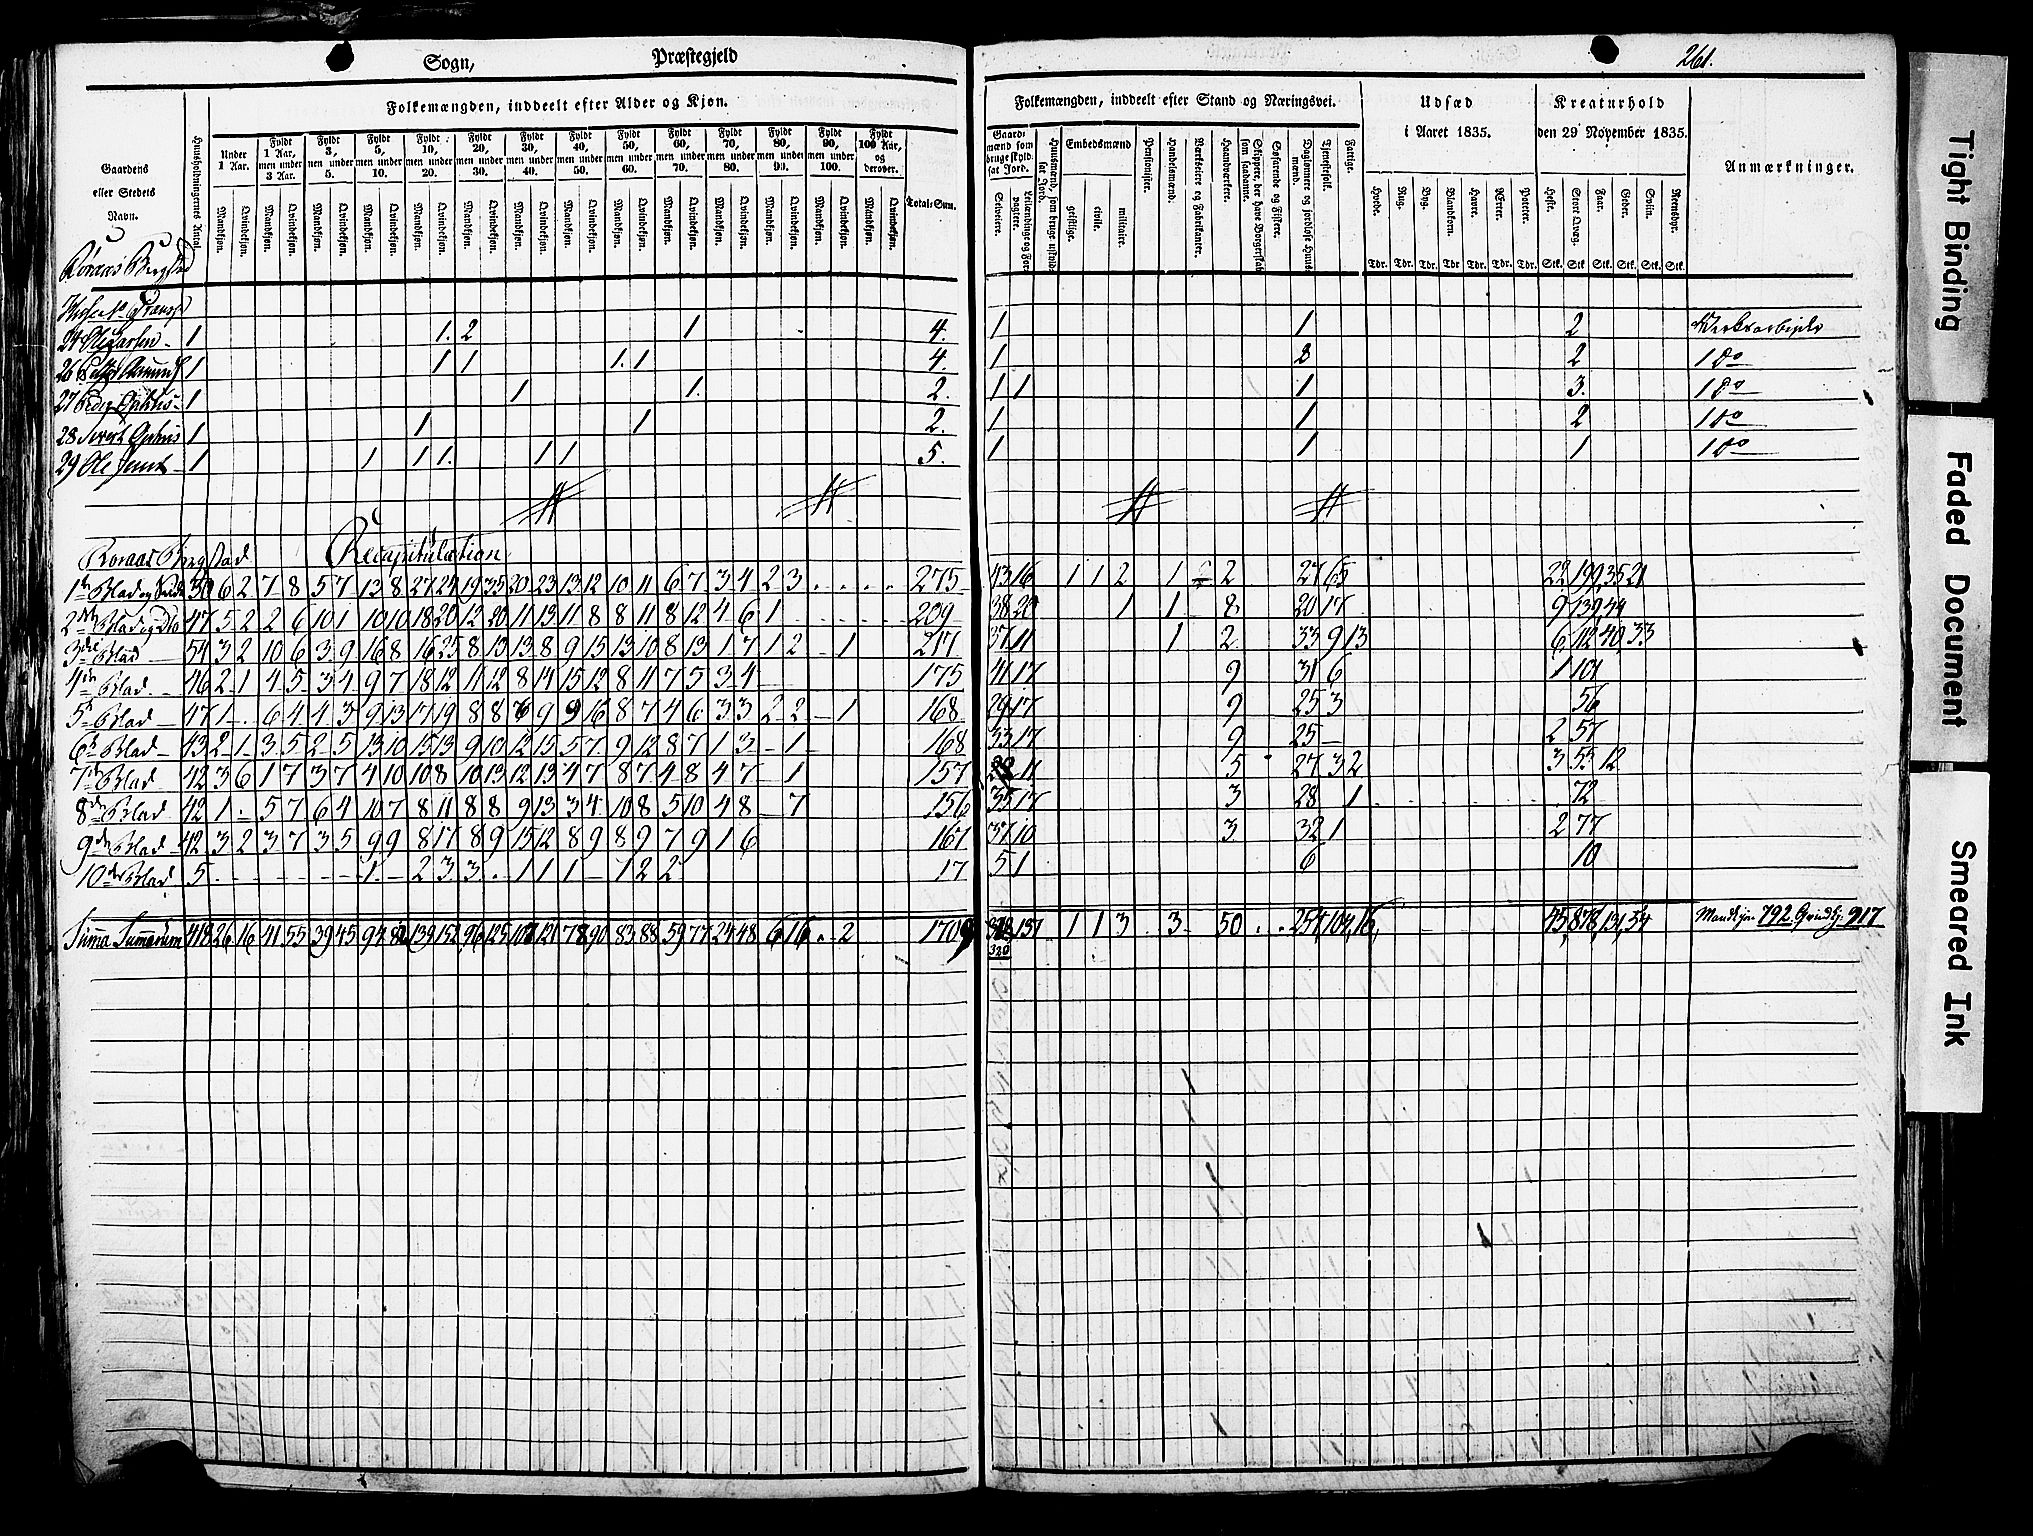 Sogn, Præstegjeld
261.
Folkemængden, inddeelt efter Alder og Kjøn.
Gaardens eller Stedets Navn.
Huusholdningernes Antal.
Under 1 Aar. Fyldt 1 Aar, men under 3 Aar. Fyldt 3, men under 5. Fyldt 5, men under 10. Fyldt 10, men under 20. Fyldt 20, men under 30. Fyldt 30, men under 40. Fyldt 40, men under 50. Fyldt 50, men under 60. Fyldt 60, men under 70. Fyldt 70, men under 80. Fyldt 80, men under 90. Fyldt 90, men under 100. Fyldt 100 Aar, og derover. Total-Sum.
Mandkjøn. Qvindekjøn. Mandkjøn. Qvindekjøn. Mandkjøn. Qvindekjøn. Mandkjøn. Qvindekjøn. Mandkjøn. Qvindekjøn. Mandkjøn. Qvindekjøn. Mandkjøn. Qvindekjøn. Mandkjøn. Qvindekjøn. Mandkjøn. Qvindekjøn. Mandkjøn. Qvindekjøn. Mandkjøn. Qvindekjøn. Mandkjøn. Qvindekjøn. Mandkjøn. Qvindekjøn. Mandkjøn. Qvindekjøn.
Folkemængden, inddeelt efter Stand og Næringsvei.
Gaardmænd som bruge skyldsat Jord.
Selveiere.
Leilændinge og Forpagtere.
Huusmænd, som bruge uskyldsat Jord.
Embedsmænd
geistlige. civile. militaire.
Pensionister.
Handelsmænd.
Værkseiere og Fabrikanter.
Haandværkere.
Skippere, der have Borgerskab som saadanne.
Søfarende og Fiskere.
Daglønnere og jordløse Huusmænd.
Tjenestefolk.
Fattige.
Udsæd i Aaret 1835.
Hvede. Rug. Byg. Blandkorn. Havre. Erter. Poteter.
Tdr. Tdr. Tdr. Tdr. Tdr. Tdr. Tdr.
Kreaturhold den 29 November 1835.
Heste. Stort Qvæg. Faar. Geder. Sviin. Reensdyr.
Stk. Stk. Stk. Stk. Stk. Stk.
Anmærkninger.
Roraas Bergstad
24 Ole Larsen 1 1. 2 1 4. 1 1 2
26 1 1 1 1. 1 4. 1 8 2 1 Do
27 Peder 1 1 1. 2. 1 1 1 3. 1 Do
28 Sivert 1 1 1 2. 1 1 2 1 Do
29 Ole 1 1 1 1. 1 1 5. 1 1 1 1 Do
Roraas Bergstad Recapitulation
1ste Blad 50 6 2 7 8 5 7 13 8 27 24 19 35 20 23 13 12 10 11 6 7 3 4 2 3 275 43 16 1 1 2 1 2 27 65 22 199 35 21
2det Blad 47 5 2 2 6 10 1 10 10 18 20 12 20 11 13 11 8 8 11 8 12 4 6 1 209 38 20 1 1 8 20 17 9 139 44
3die Blad 54 3 2 10 6 3 9 16 8 16 25 8 13 13 8 9 15 13 10 8 13 1 7 1 2 1 217 37 11 1 2 33 9 13 6 112 40 33
4de Blad 46 2 1 4 5 3 4 9 7 18 12 11 12 8 14 15 12 8 11 7 5 3 4 175 41 17 9 31 6 1 101
5te Blad 47 1 6 4 4 3 9 13 17 19 8 8 6 9 9 16 8 7 4 6 3 3 2 2 1 168 29 17 9 25 3 56
6te Blad 43 2 1 3 5 2 5 13 10 15 13 9 10 12 15 5 7 9 12 8 7 1 3 1 168 33 17 9 25 2 57
7de Blad 42 3 6 1 7 3 7 4 10 10 8 10 13 12 13 4 7 8 7 4 8 4 7 1 157 11 5 27 3 2 3 55 12
8de Blad 42 1 5 7 6 4 10 7 8 11 8 8 9 13 3 4 10 8 5 10 4 8 7 156 35 17 3 28 1 72
9de Blad 42 3 2 3 7 3 5 9 9 8 17 8 9 15 12 8 9 8 9 7 9 1 6 167 37 10 3 32 1 2 77
10de Blad 5 1 2 3 3 1 1 1 1 2 2 17 5 1 6 10
Summa Summarum 418 26 16 41 55 39 45 94 82 139 152 96 125 107 121 78 90 83 88 59 77 24 48 6 16 2 1709 137 1 1 3 3 50 254 104 16 45 878 131 54 Mandkjøn 792. Qvindkj. 917
320
Tight Binding
Faded Document
Smeared Ink